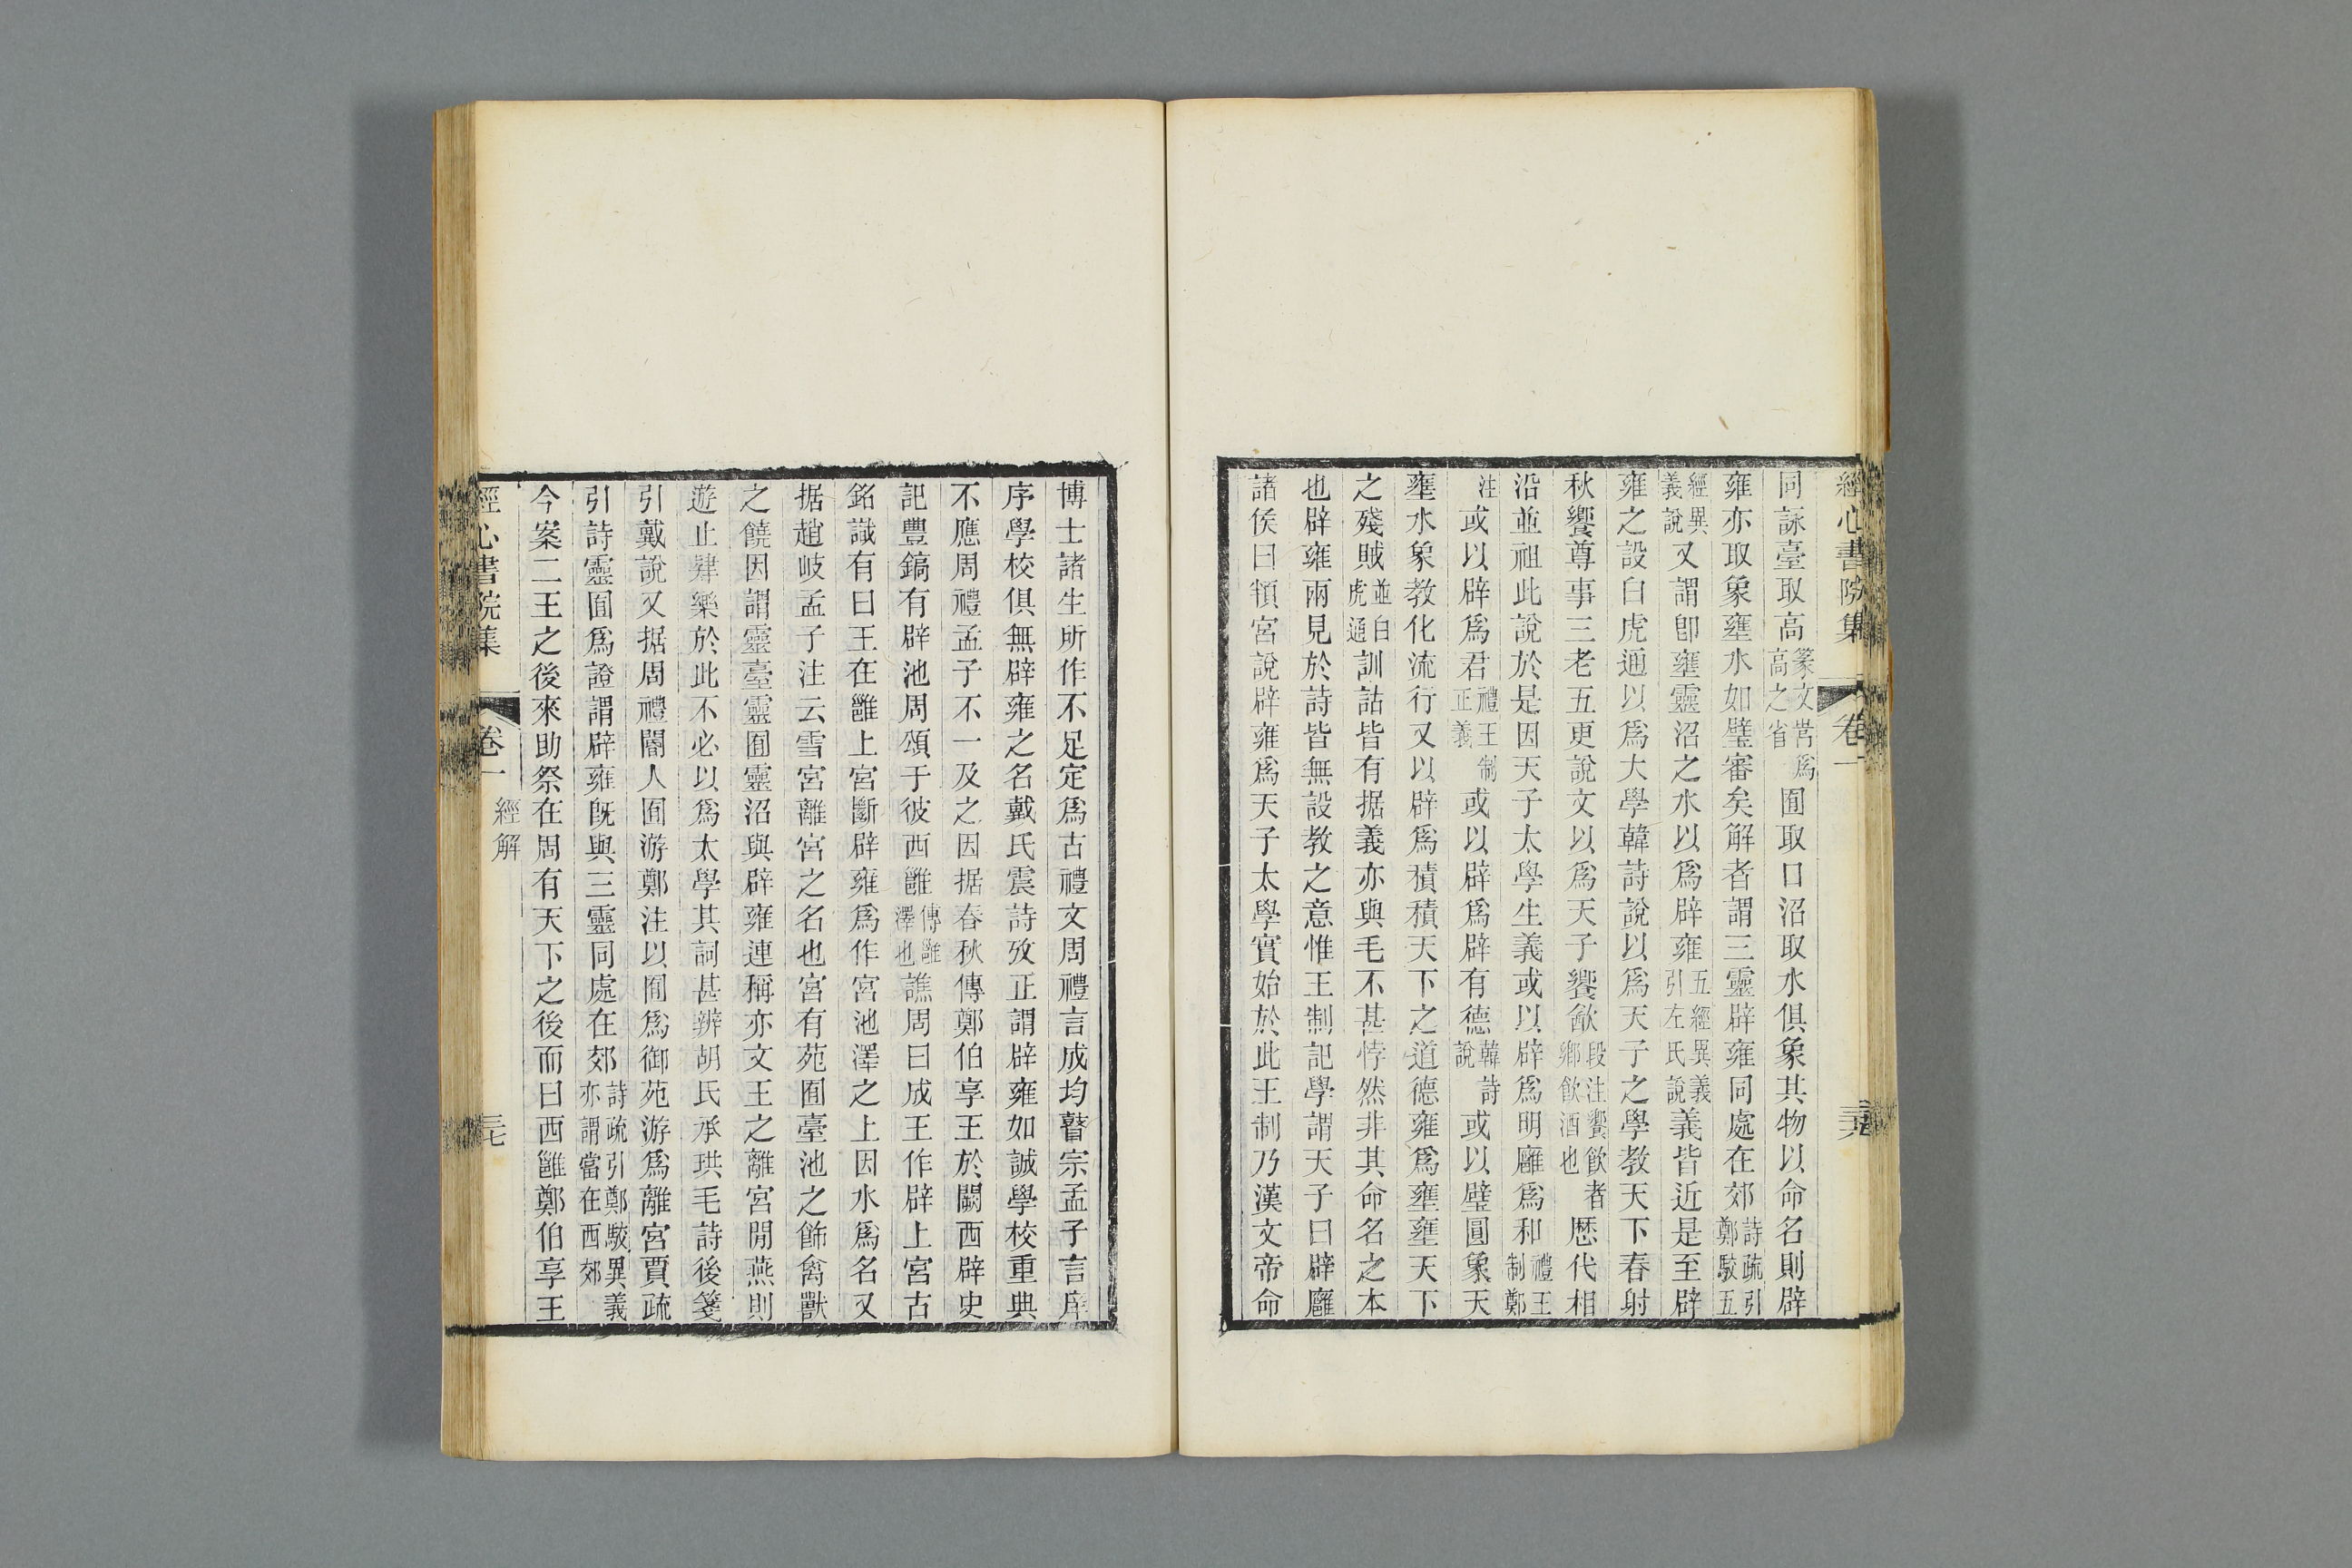 經心書院集 卷一
同詠臺取高篆文喾爲高之省囿取口沼取水俱象其物以命名則辟
雍亦取象壅水如璧審矣解者謂三靈辟雍同處在郊詩疏引鄭駁五
經異義說又謂卽壅靈沼之水以爲辟雍五經異義引左氏說義皆近是至辟
雍之設白虎通以爲大學韓詩說以爲天子之學教天下春射
秋饗尊事三老五更說文以爲天子饗飮段注饗飮者鄉飮酒也歷代相
沿並祖此說於是因天子太學生義或以辟爲明廱爲和禮王制鄭
注或以辟爲君禮王制正義或以辟爲辟有德韓詩說或以璧圓象天
壅水象教化流行又以辟爲積積天下之道德雍爲壅壅天下
之殘賊並白虎通訓詁皆有据義亦與毛不甚悖然非其命名之本
也辟雍兩見於詩皆無設教之意惟王制記學謂天子曰辟廱
諸侯曰頖宮說辟雍爲天子太學實始於此王制乃漢文帝命
博士諸生所作不足定爲古禮文周禮言成均瞽宗孟子言庠
序學校俱無辟雍之名戴氏震詩攷正謂辟雍如誠學校重典
不應周禮孟子不一及之因据春秋傳鄭伯享王於闕西辟史
記豐鎬有辟池周頌于彼西雝傳雝澤也譙周曰成王作辟上宮古
銘識有曰王在雝上宮斷辟雍爲作宮池澤之上因水爲名又
据趙岐孟子注云雪宮離宮之名也宮有苑囿臺池之飾禽獸
之饒因謂靈臺靈囿靈沼與辟雍連稱亦文王之離宮閒燕則
遊止肄樂於此不必以爲太學其詞甚辨胡氏承珙毛詩後箋
引戴說又据周禮閽人囿游鄭注以囿爲御苑游爲離宮賈疏
引詩靈囿爲證謂辟雍旣與三靈同處在郊詩疏引鄭駁異義亦謂當在西郊
今案二王之後來助祭在周有天下之後而曰西雝鄭伯享王
經心書院集 卷一 經解 三七